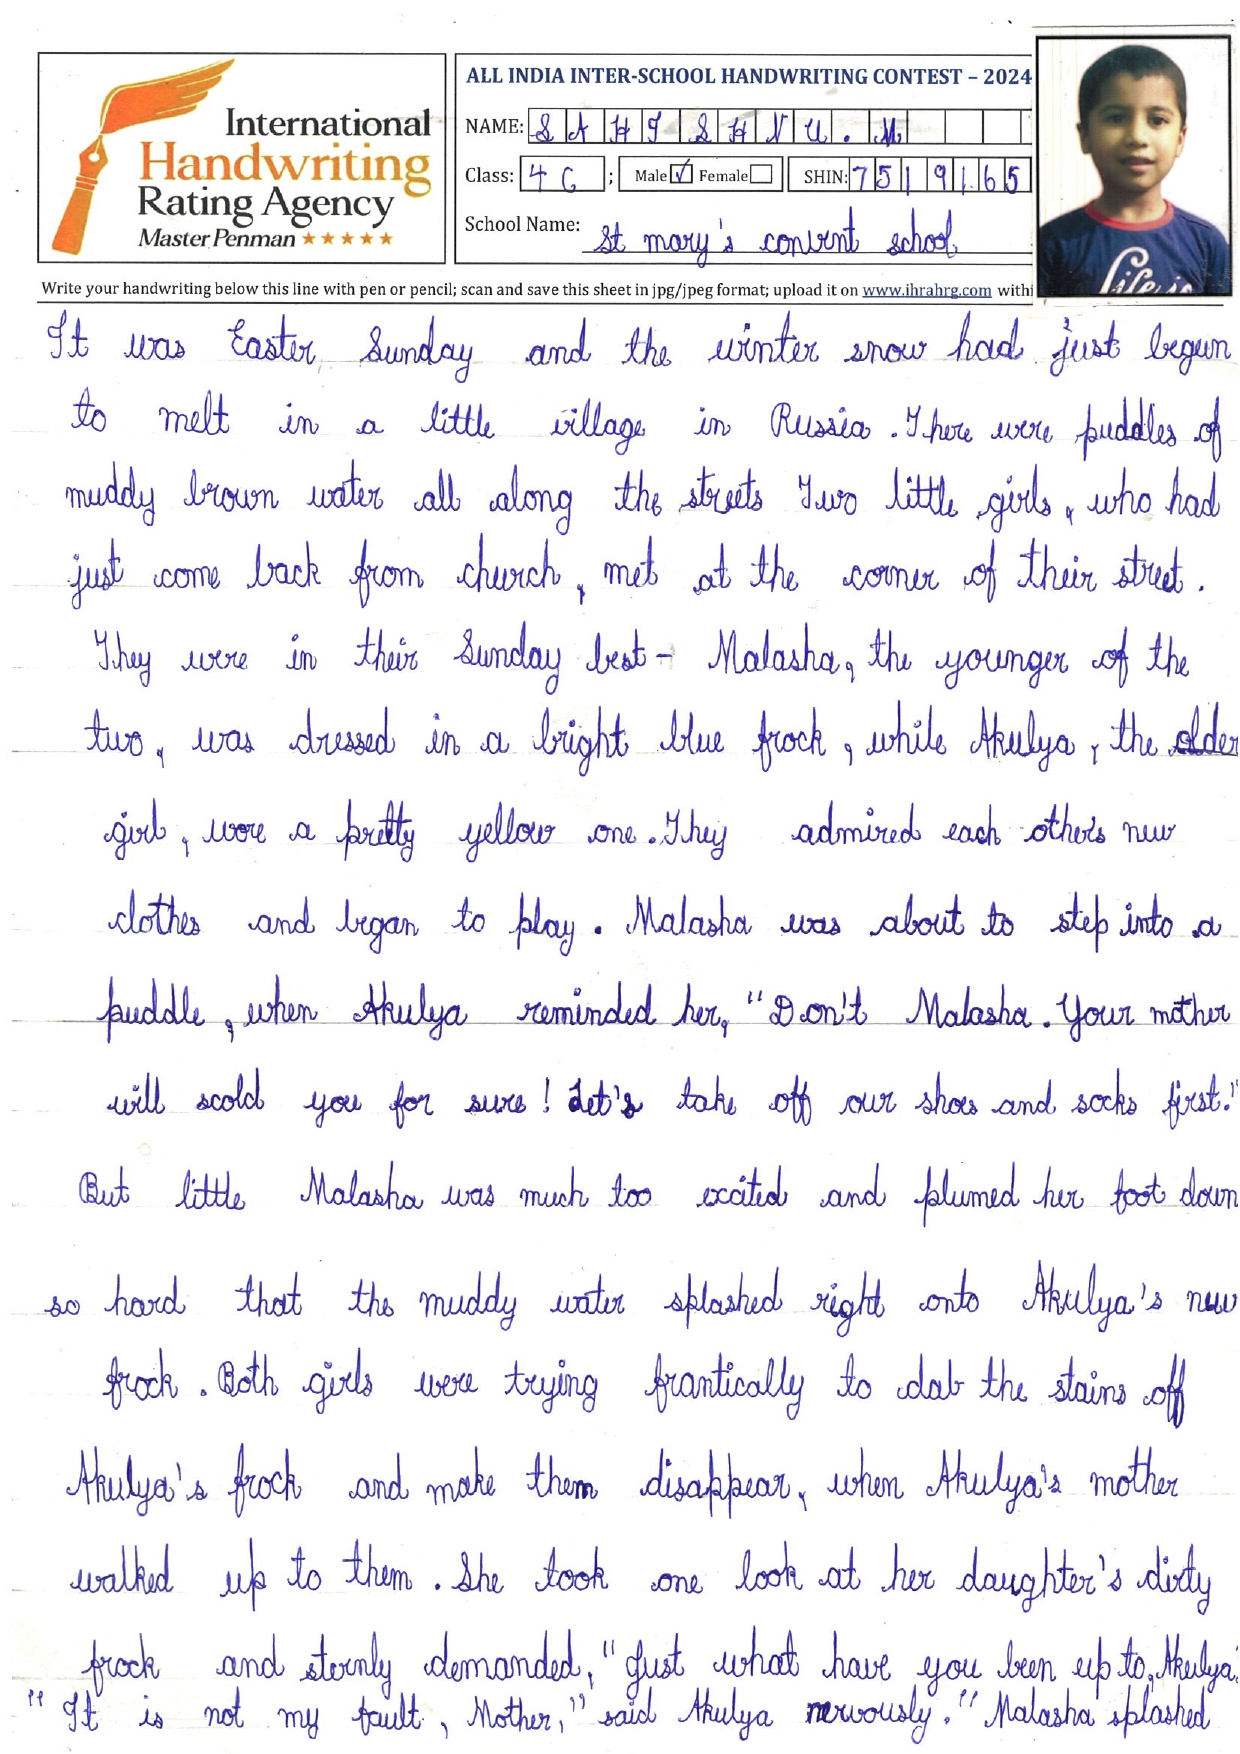 International
Handwriting
Rating Agency
Master Penman
ALL INDIA INTER-SCHOOL HANDWRITING CONTEST – 2024
NAME: SAHISHNU.M
Class: 4 C ; Male ✓ Female SHIN: 7519165
School Name: St mary's convent school
Write your handwriting below this line with pen or pencil; scan and save this sheet in jpg/jpeg format; upload it on www.ihrahrg.com withi
It was Easter Sunday and the winter snow had just begun
to melt in a little village in Russia. There were puddles of
muddy brown water all along the streets Two little girls, who had
just come back from church, met at the corner of their street.
They were in their Sunday best - Malasha, the younger of the
two, was dressed in a bright blue frock, while Akulya, the older
girl, wore a pretty yellow one. They admired each others new
clothes and began to play. Malasha was about to step into a
puddle, when Akulya reminded her, "Don't Malasha. Your mother
will scold you for sure! Let's take off our shoes and socks first."
But little Malasha was much too excited and plumed her foot down
so hard that the muddy water splashed right onto Akulya's new
frock. Both girls were trying frantically to dab the stains off
Akulya's frock and make them disappear, when Akulya's mother
walked up to them. She took one look at her daughter's dirty
frock and sternly demanded, "Just what have you been up to, Akulya
"It is not my fault, Mother," said Akulya nervously. "Malasha splashed
Life is